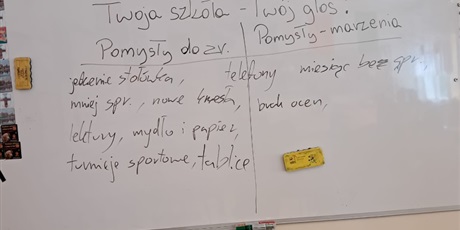 Twoja szkóła - Twój głos.
Pomysły do zr.
Pomysły - marzenia
jedzenie stołówka,
mniej spr., nowe krzesła,
lektury, mydło i papier,
turnieje sportowe, tablice
telefony miesiąc bez spr.,
brak ocen,